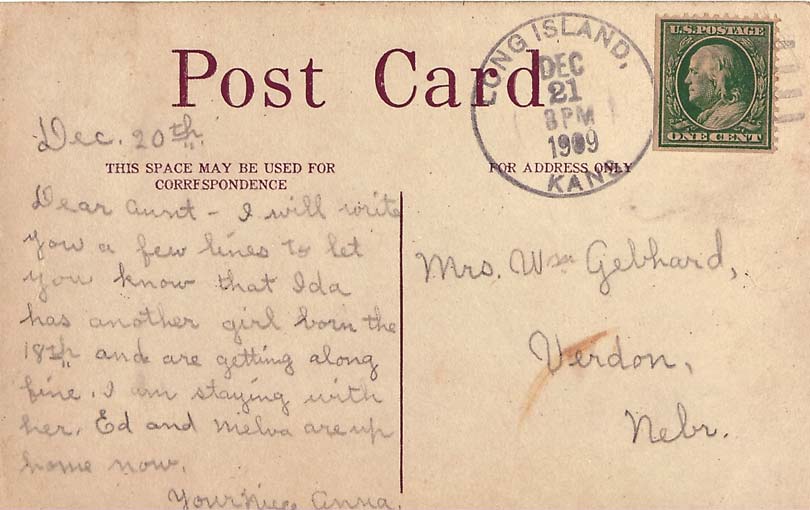 Post Card
LONG ISLAND,
DEC
21
8 PM
1909
KANS
U.S. POSTAGE
ONE CENT
Dec. 20th.
THIS SPACE MAY BE USED FOR
CORRESPONDENCE
FOR ADDRESS ONLY
Dear Aunt - I will write
you a few lines to let
you know that Ida
has another girl born the
18th and are getting along
fine. I am staying with
her. Ed and Melva are up
home now.
Your Niece Anna.
Mrs. Wm Gebhard,
Verdon,
Nebr.